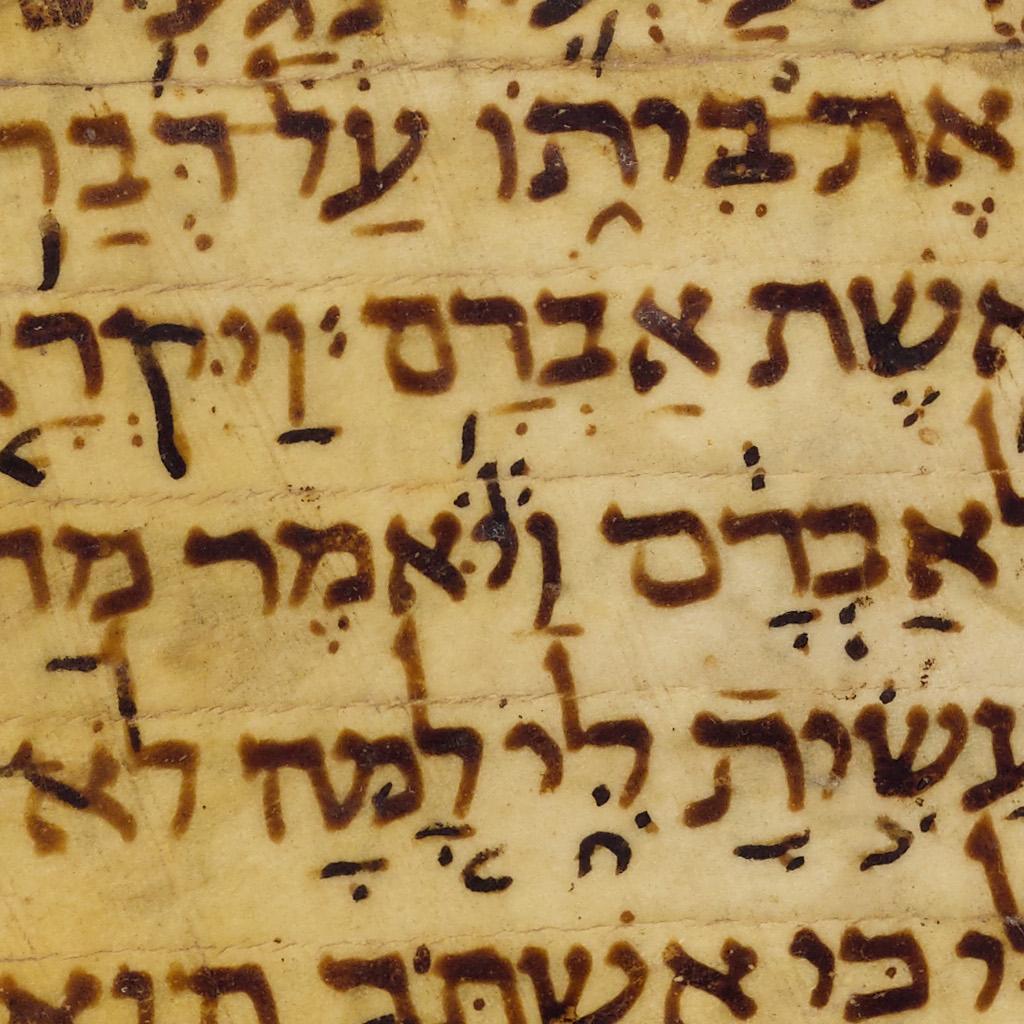 אֶת בֵּיתוֹ עַל דְּבַר
אֵשֶׁת אַבְרָם׃ וַיִּקְרָ
לְאַבְרָם וַיֹּאמֶר מַה
עָשִׂיתָ לִּי לָמָּה לֹא
לִי כִּי אִשְׁתְּךָ הִוא